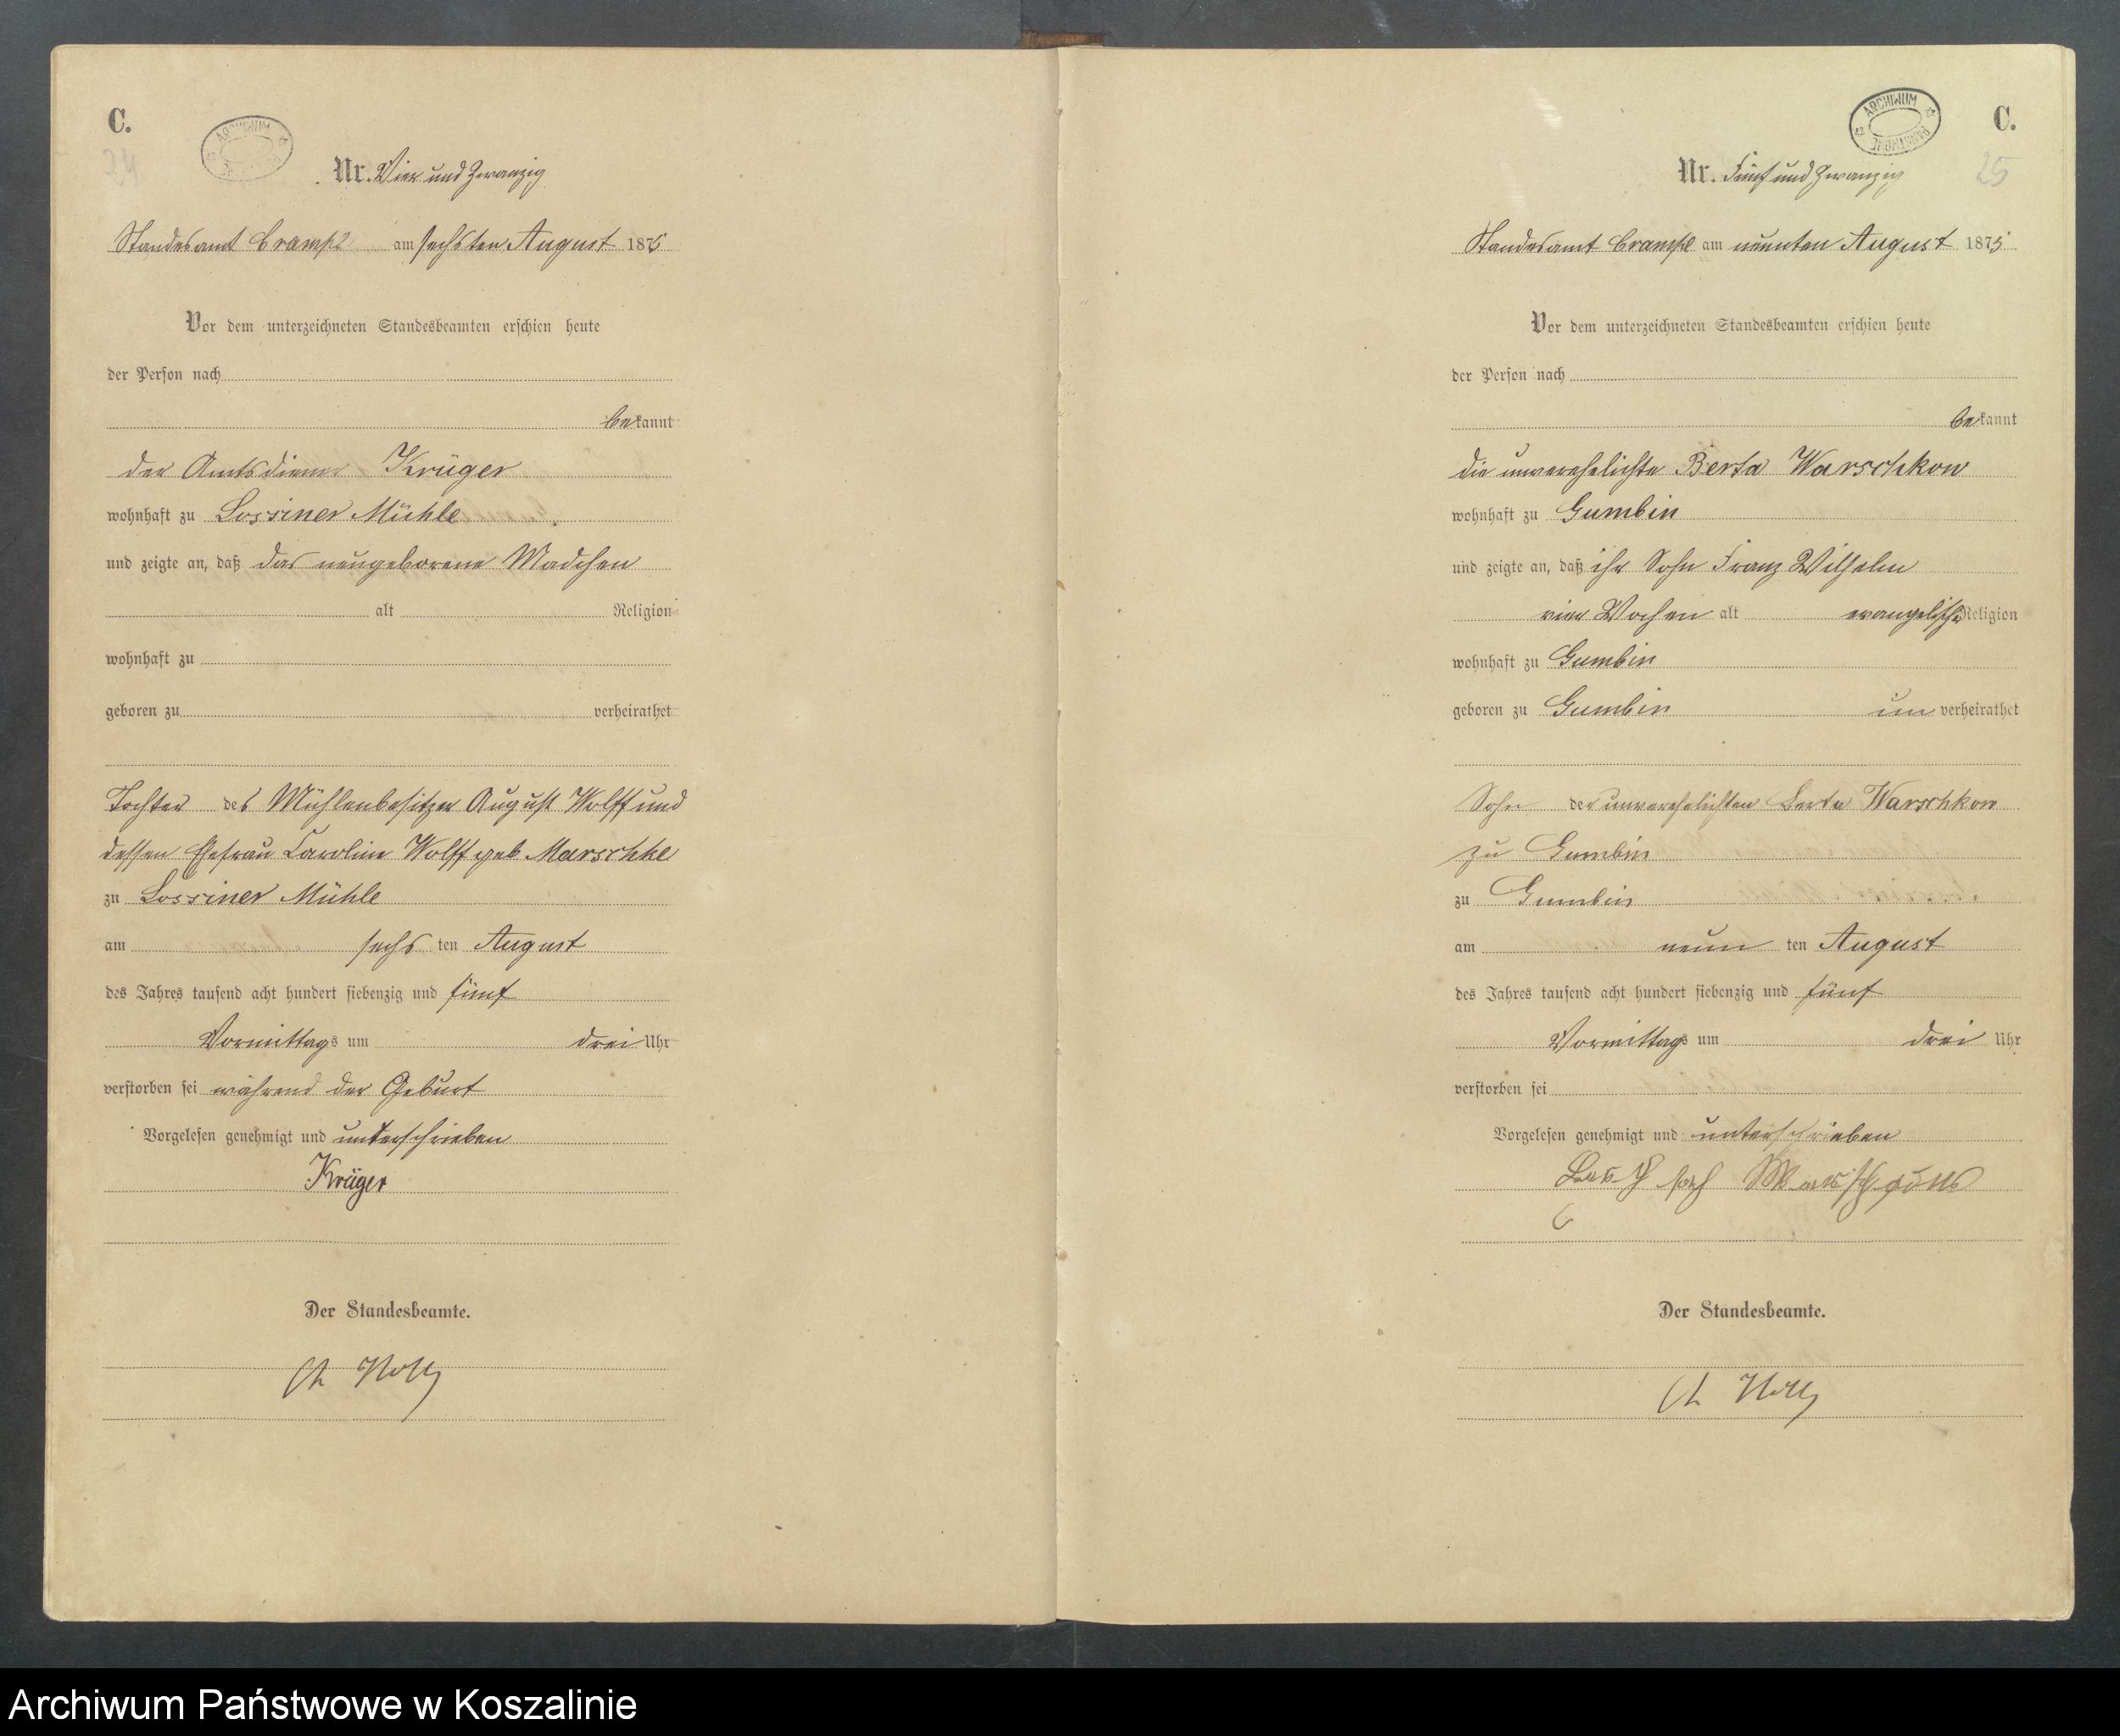 C.
24
ARCHIWUM
Nr. Vier und Zwanzig
Standesamt Crampe am sechsten August 1875
Vor dem unterzeichneten Standesbeamten erschien heute
der Person nach
bekannt
der Amtsdiener Krüger
wohnhaft zu Lossiner Mühle
und zeigte an, daß das neugeborene Mädchen
alt Religion
wohnhaft zu
geboren zu verheirathet
Tochter des Mühlenbesitzer August Wolff und
dessen Ehefrau Caroline Wolff geb. Marschke
zu Lossiner Mühle
am sechs ten August
des Jahres tausend acht hundert siebenzig und fünf
Vormittags um drei Uhr
verstorben sei während der Geburt
Vorgelesen genehmigt und unterschrieben
Krüger
Der Standesbeamte.
C.
25
ARCHIWUM PAŃSTWOWE
Nr. Fünf und Zwanzig
Standesamt Crampe am neunten August 1875
Vor dem unterzeichneten Standesbeamten erschien heute
der Person nach
bekannt
die unverehelichte Berta Warschkow
wohnhaft zu Gumbin
und zeigte an, daß ihr Sohn Franz Wilhelm
vier Wochen alt evangelischer Religion
wohnhaft zu Gumbin
geboren zu Gumbin un verheirathet
Sohn der unverehelichten Berta Warschkow
zu Gumbin
zu Gumbin
am neun ten August
des Jahres tausend acht hundert siebenzig und fünf
Vormittags um drei Uhr
verstorben sei
Vorgelesen genehmigt und unterschrieben
Der Standesbeamte.
Archiwum Państwowe w Koszalinie